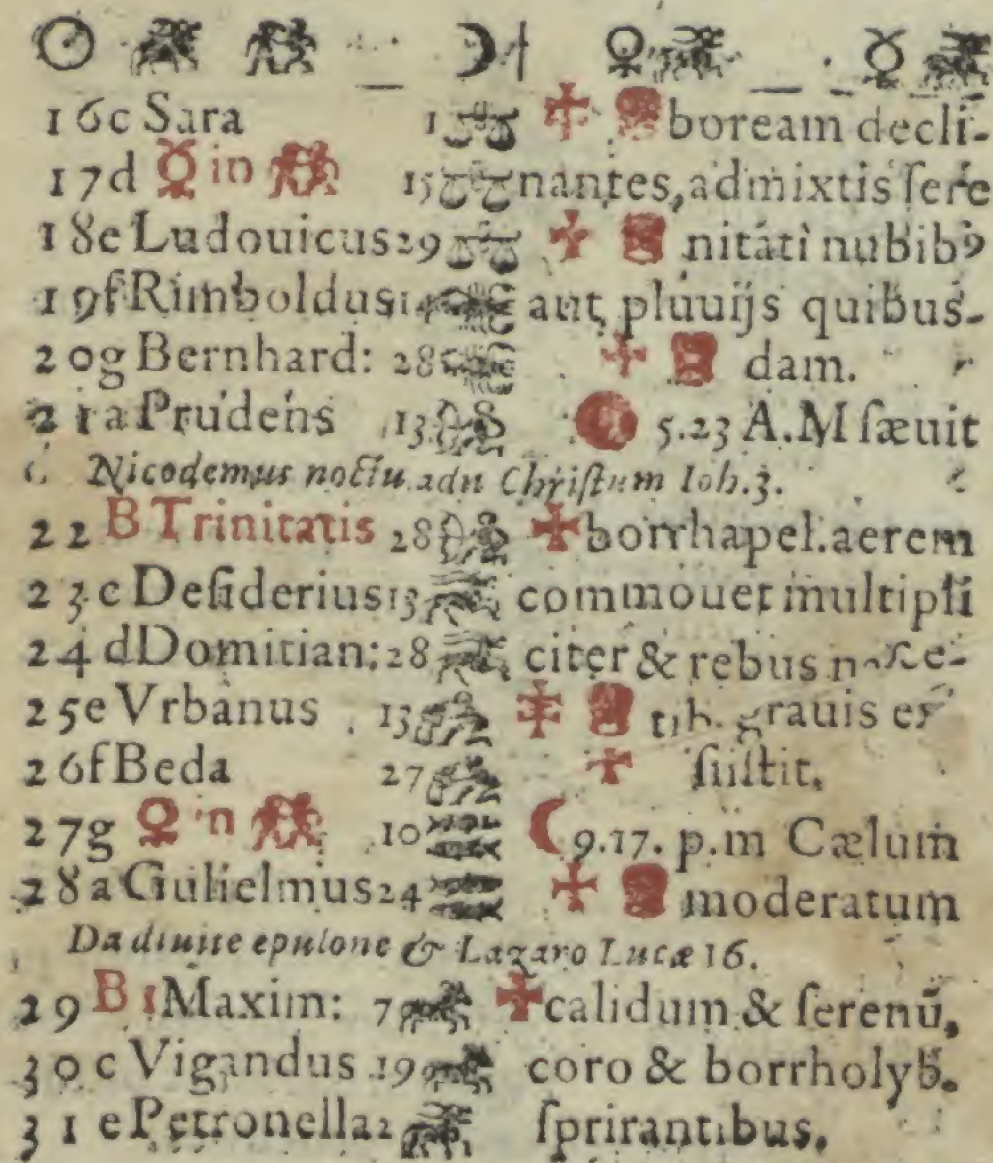 ☉ ☽ ♀ ☿
16c Sara 1 boream decli-
17d ☿ in 15 nantes, admixtis ſere
18e Ludouicus 29 nitati nubibꝰ
19f Rimboldus 14 aut pluuijs quibus-
20g Bernhard: 28 dam.
21a Prudens 13 5.23 A.M ſæuit
Nicodemus noctu adit Chriſtum Ioh.3.
22 B Trinitatis 28 borrhapel. aerem
23c Deſiderius 13 commouet multipli
24d Domitian: 28 citer & rebus
25e Vrbanus 13 tib. grauis
26f Beda 27 ſiſtit.
27g ♀ in 10 ☾ 9.17. p.m Cælum
28a Gulielmus 24 moderatum
Da diuite epulone & Lazaro Lucæ 16.
29 B 1 Maxim: 7 calidum & ſerenū,
30c Vigandus 19 coro & borrholyb.
31e Petronella 2 ſprirantibus.